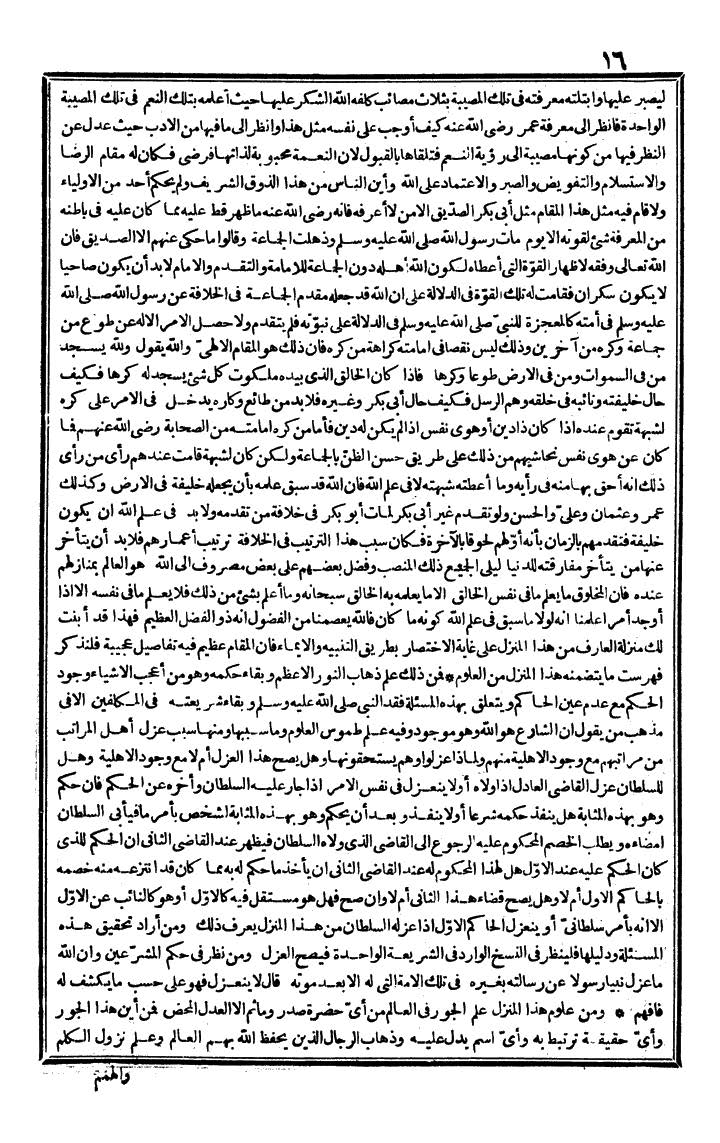 ١٦
ليصبر عليها وابتلته معرفته فى تلك المصيبة بثلاث مصائب كلفه الله الشكر عليها حيث أعلمه بتلك النعم فى تلك المصيبة
الواحدة فانظر الى معرفة عمر رضى الله عنه كيف أوجب على نفسه مثل هذا وانظر الى ما فيها من الادب حيث عدل عن
النظر فيها من كونها مصيبة الى رؤية النعم فتلقاها بالقبول لان النعمة محبوبة لذاتها فرضى فكان له مقام الرضا
والاستسلام والتفويض والصبر والاعتماد على الله وأين الناس من هذا الذوق الشريف ولم يحكم أحد من الاولياء
ولا قام فيه مثل هذا المقام مثل أبى بكر الصدّيق الا من لا أعرفه فانه رضى الله عنه ما ظهر قط عليه مما كان عليه فى باطنه
من المعرفة شئ لقوته الا يوم مات رسول الله صلى الله عليه وسلم وذهلت الجماعة وقالوا ما حكى عنهم الا الصديق فان
الله تعالى وفقه لاظهار القوّة التى أعطاه لكون الله أهله دون الجماعة للامامة والتقدم والامام لا بد أن يكون صاحيا
لا يكون سكران فقامت له تلك القوّة فى الدلالة على ان الله قد جعله مقدم الجماعة فى الخلافة عن رسول الله صلى الله
عليه وسلم فى أمته كالمعجزة للنبىّ صلى الله عليه وسلم فى الدلالة على نبوّته فلم يتقدم ولا حصل الامر الا له عن طوع من
جماعة وكره من آخرين وذلك ليس نقصا فى امامته كراهة من كره فان ذلك هو المقام الالهىّ والله يقول ولله يسجد
من فى السموات ومن فى الارض طوعا وكرها فاذا كان الخالق الذى بيده ملكوت كل شئ يسجد له كرها فكيف
حال خليفته ونائبه فى خلقه وهم الرسل فكيف حال أبى بكر وغيره فلا بد من طائع وكاره يدخل فى الامر على كره
لشبهة تقوم عنده اذا كان ذا دين أو هوى نفس اذا لم يكن له دين فأما من كره امامته من الصحابة رضى الله عنهم فما
كان عن هوى نفس نحاشيهم من ذلك على طريق حسن الظنّ بالجماعة ولكن كان لشبهة قامت عندهم رأى من رأى
ذلك انه أحق بها منه فى رأيه وما أعطته شبهته لا فى علم الله فان الله قد سبق علمه بأن يجعله خليفة فى الارض وكذلك
عمر وعثمان وعلىّ والحسن ولو تقدم غير أبى بكر لمات أبو بكر فى خلافة من تقدمه ولا بد فى علم الله ان يكون
خليفة فتقدمهم بالزمان بأنه أوّلهم لحوقا بالآخرة فكان سبب هذا الترتيب فى الخلافة ترتيب أعمارهم فلا بد أن يتأخر
عنها من يتأخر مفارقته للدنيا ليلى الجميع ذلك المنصب وفضل بعضهم على بعض مصروف الى الله هو العالم بمنازلهم
عنده فان المخلوق ما يعلم ما فى نفس الخالق الا ما يعلمه به الخالق سبحانه وما أعلم بشئ من ذلك فلا يعلم ما فى نفسه الا اذا
أوجد أمرا علمنا انه لولا ما سبق فى علم الله كونه ما كان فالله يعصمنا من الفضول انه ذو الفضل العظيم فهذا قد أبنت
لك منزلة العارف من هذا المنزل على غاية الاختصار بطريق التنبيه والايماء فان المقام عظيم فيه تفاصيل عجيبة فلنذكر
فهرست ما يتضمنه هذا المنزل من العلوم * فمن ذلك علم ذهاب النور الاعظم وبقاء حكمه وهو من أعجب الاشياء وجود
الحكم مع عدم عين الحاكم ويتعلق بهذه المسئلة فقد النبى صلى الله عليه وسلم وبقاء شريعته فى المكلفين الا فى
مذهب من يقول ان الشارع هو الله وهو موجود وفيه علم طموس العلوم وما سببها ومنها سبب عزل أهل المراتب
من مراتبهم مع وجود الاهلية منهم ولماذا عزلوا وهم يستحقونها وهل يصح هذا العزل أم لا مع وجود الاهلية وهل
للسلطان عزل القاضى العادل اذا ولاه أو لا ينعزل فى نفس الامر اذا جار عليه السلطان وأخره عن الحكم فان حكم
وهو بهذه المثابة هل ينفذ حكمه شرعا أو لا ينفذ وبعد أن يحكم وهو بهذه المثابة لشخص بأمر ما فيأبى السلطان
امضاءه ويطلب الخصم المحكوم عليه الرجوع الى القاضى الذى ولاه السلطان فيظهر عند القاضى الثانى ان الحكم للذى
كان الحكم عليه عند الاوّل هل لهذا المحكوم له عند القاضى الثانى ان يأخذ ما حكم له به مما كان قد انتزعه منه خصمه
بالحاكم الاول أم لا وهل يصح قضاء هذا الثانى أم لا وان صح فهل هو مستقل فيه كالاوّل أو هو كالنائب عن الاوّل
الا انه بأمر سلطانىّ أو ينعزل الحاكم الاوّل اذا عزله السلطان من هذا المنزل يعرف ذلك ومن أراد تحقيق هذه
المسئلة ودليلها فلينظر فى النسخ الوارد فى الشريعة الواحدة فيصح العزل ومن نظر فى حكم المشرّعين وان الله
ما عزل نبيا رسولا عن رسالته بغيره فى تلك الامة التى له الا بعد موته قال لا ينعزل فهو على حسب ما يكشف له
فافهم * ومن علوم هذا المنزل علم الجور فى العالم من أىّ حضرة صدر وما ثم الا العدل المحض فمن أين هذا الجور
وأىّ حقيقة ترتبط به وأىّ اسم يدل عليه وذهاب الرجال الذين يحفظ الله بهم العالم وعلم نزول الكلم
والهمم